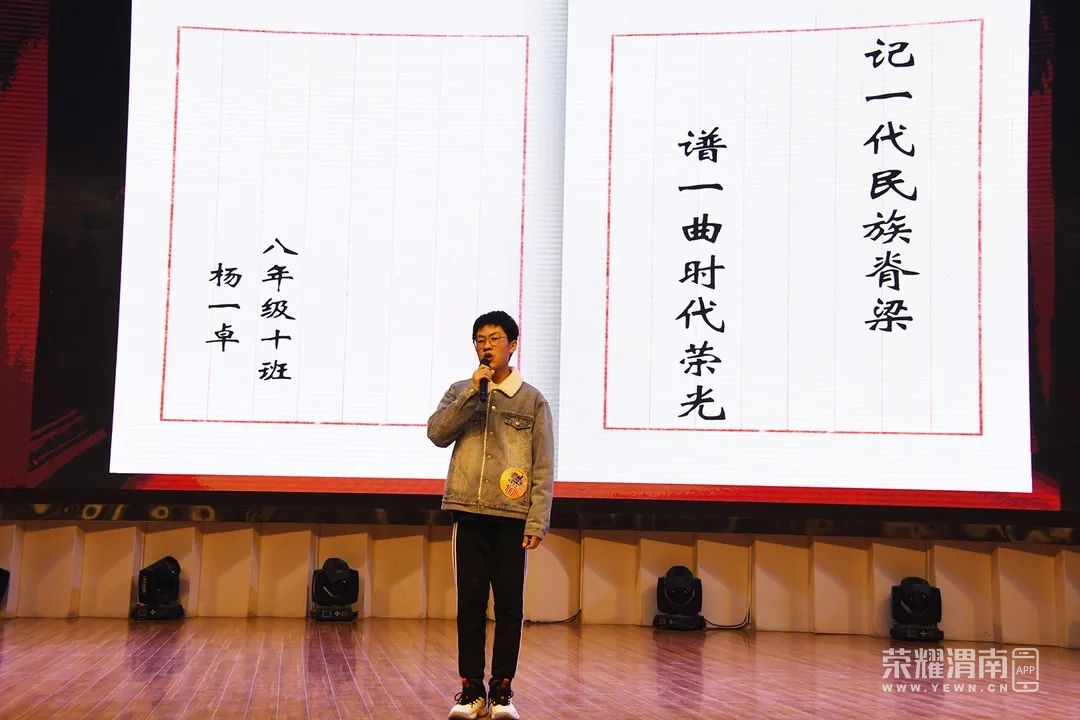 记一代民族脊梁
谱一曲时代荣光
八年级十班
杨一卓
荣耀渭南
APP
WWW.YEWN.CN